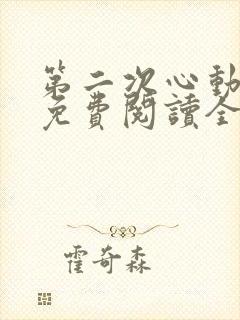 第二次心動
免費閱讀全
霍奇森